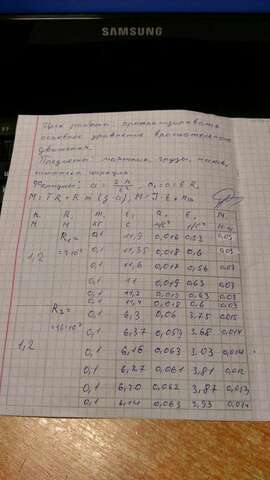 SAMSUNG
Цель работы: проанализировать
основное уравнение вращательного
движения.
Предметы: маятник, грузы, часы,
Формулы: a = 2h/t²
h, R, m, t, a, E, M,
м м кг с м/с² 1/с² Н·м
1,2 R₁= 0,1 11,9 0,016 0,53 0,03
0,1 11,35 0,018 0,6 0,03
0,1 11,6 0,017 0,56 0,03
0,1 11 0,019 0,63 0,03
0,1 11,2 0,019 0,63 0,03
0,1 11,4 0,018 0,6 0,03
1,2 R₂= 0,1 6,3 0,06 3,75 0,015
0,1 6,37 0,059 3,68 0,014
0,1 6,16 0,063 3,03 0,014
0,1 6,27 0,061 3,81 0,012
0,1 6,20 0,062 3,87 0,013
0,1 6,14 0,063 3,93 0,014